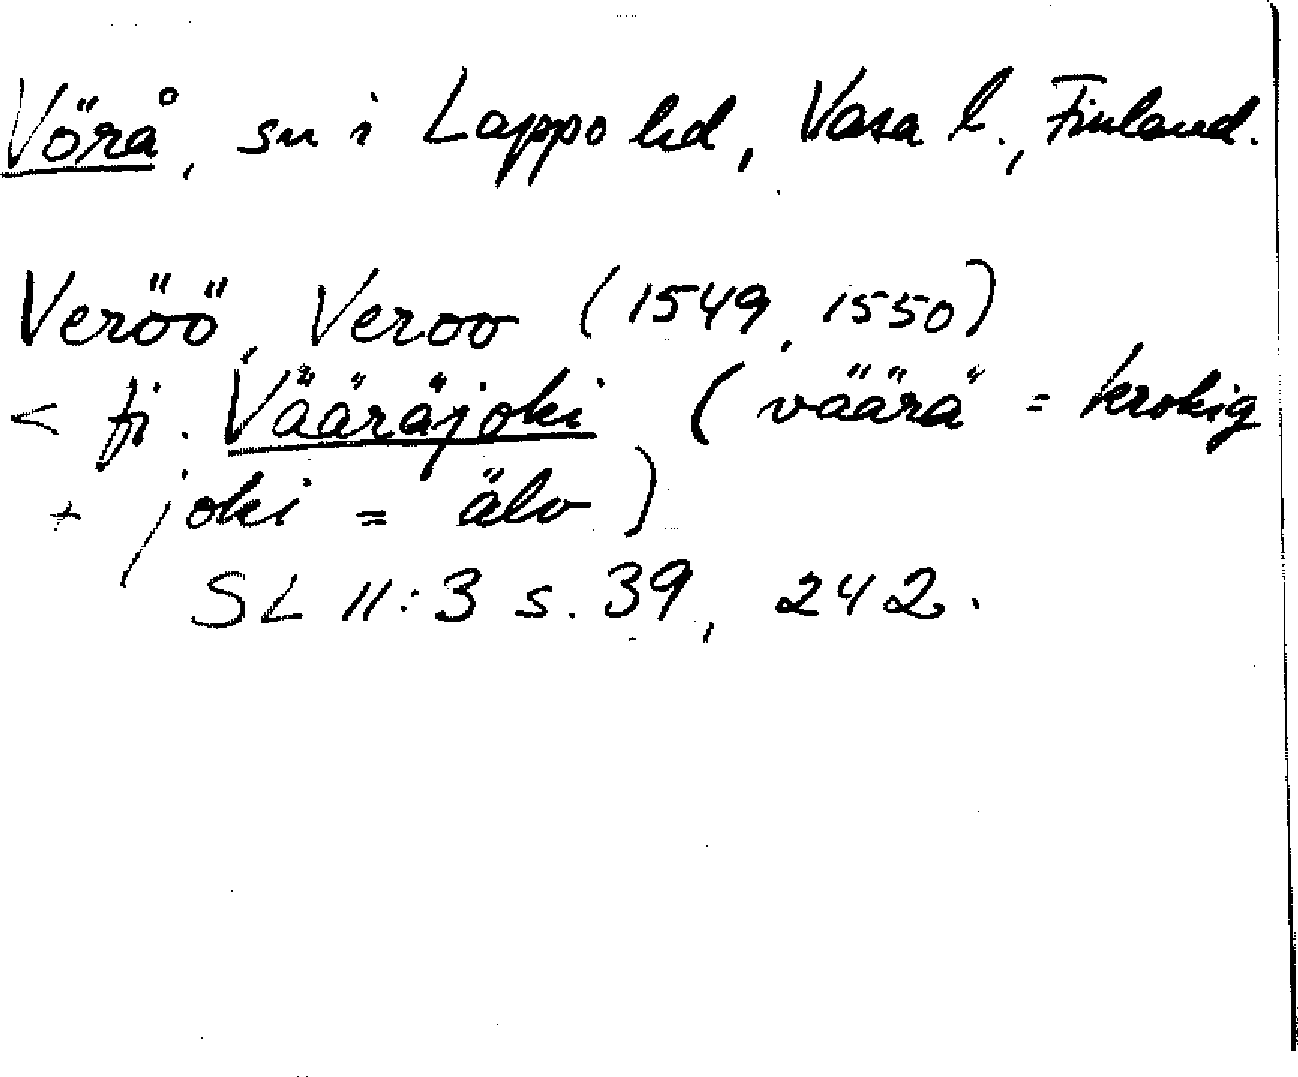 Vörå, sn i Lappo hd, Vasa l., Finland.
Veröö, Veroo (1549, 1550)
< fi. Vääräjoki (väärä = krokig
+ joki = älv)
SL II:3 s. 39, 242.